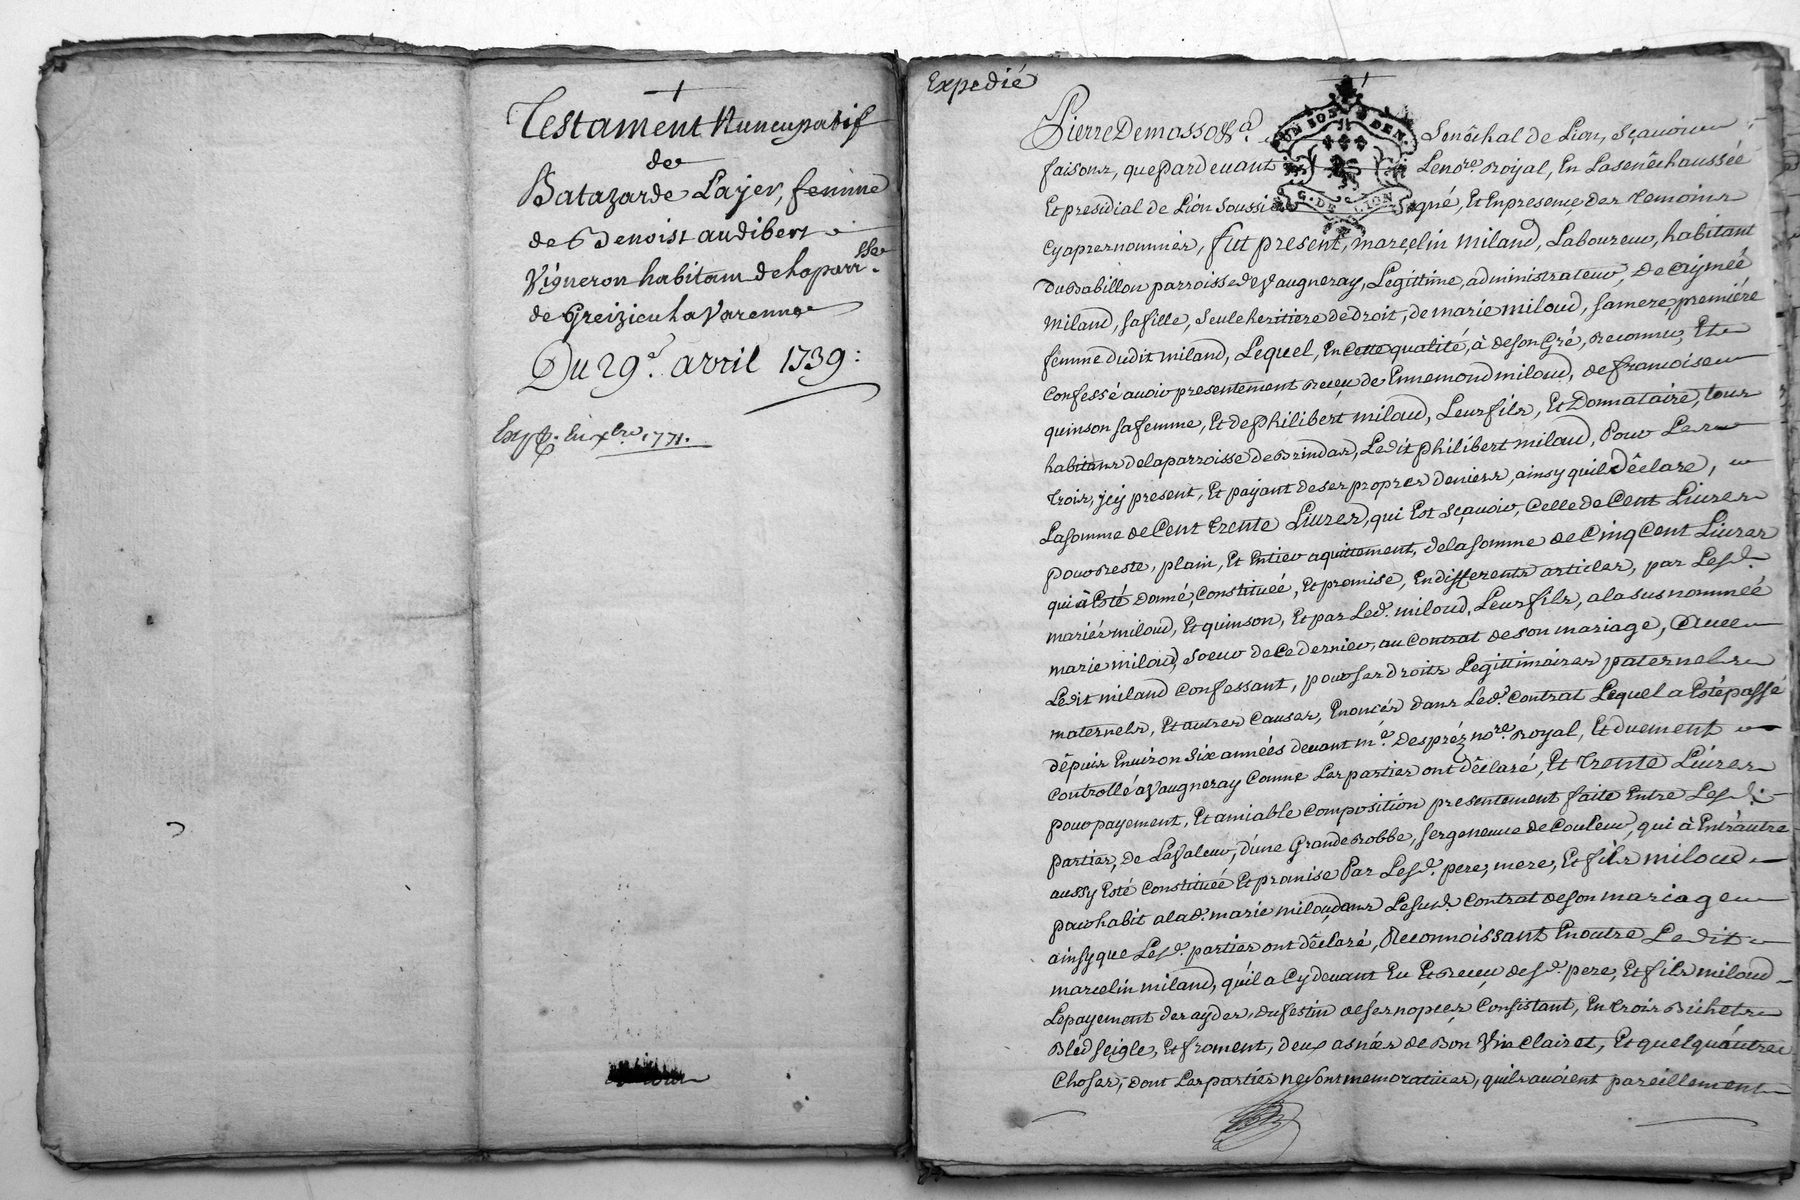 Testament Nuncupatif
de
Batazarde Layer, femme
de Benoist audibert
Vigneron habitant de la parr.sse
de Greizieu la Varenne
Du 29e. avril 1739:
Exp. en xbre 1771.
Expedié
UN SOL 4 DEN.
G. DE LION
Pierre Demasso &a. Senêchal de Lion, sçavoir
faisons, que Pardevant Le nore. royal, En La senêchaussée
Et presidial de Lion Soussigné, Et En presence des temoins
Cy apres nommés, fut present, marcelin milaud, Laboureur, habitant
du babillon parroisse de Vaugneray, Legittime, administrateur, De aymeé
milaud, sa fille, seule heritiere de droit, de marie miloud, sa mere, premiére
femme dudit milaud, Lequel, En Cette qualité, à de son Gré, reconnu, Et
Confessé avoir presentement receu de Ennemond miloud, de francoise
quinson sa femme, Et de Philibert miloud, Leur fils, Et Donnataire, tous
habitans de la parroisse de Brindas, Ledit Philibert miloud, Pour Les
trois, icy present, Et payant de ses propres deniers, ainsy quil déclare,
La somme de Cent trente Livres, qui Est sçavoir, Celle de Cent Livres
pour reste, plain, Et Entier aquittement, de la somme de Cinq Cent Livres
qui à Esté donné, Constituéé, Et promise, En differents articles, par Lesd.
mariés miloud, Et quinson, Et par Led. miloud, Leur fils, a la susnomméé
marie miloud, soeur de Ce dernier, au Contrat de son mariage, Avec
Ledit milaud Confessant, pour ses droits Legittimaires paternels
maternels, Et autres Causes, Enoncés dans Led. Contrat Lequel a Esté passé
dépuis Environ Six années devant me. Despréz nore. royal, Et duement
Controllé a Vaugneray Comme Les parties ont déclaré, Et Trente Livres
pour payement, Et amiable Composition presentement faite Entre Lesd.
parties, De La Valeur, d'une Grande Robbe, sergeneuve de Couleur, qui à Entr'autre
aussy Esté Constituéé Et promise Par Lesd. pere, mere, Et fils miloud
pour habit a lad. marie miloud dans Le susd. Contrat de son mariage
ainsy que Lesd. parties ont déclaré, Reconnoissant En outre Ledit
marcelin milaud, qu'il a Cy devant Eu Et Receu desd. pere, Et fils miloud
Le payement des aydes, du festin de ses nopces Consistant, En trois Bichets
Bled seigle, Et froment, deux asnées de Bon Vin Clairet, Et quelqu'autres
Choses, dont Les parties ne sont memoratives, quils avoient pareillement